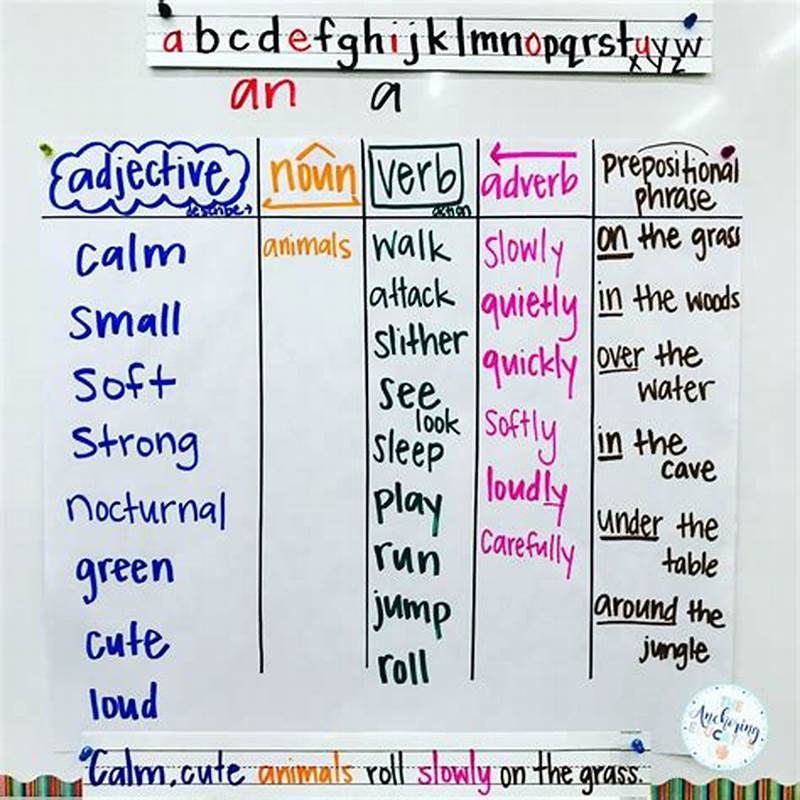 a b c d e f g h i j k l m n o p q r s t u v w
x y z
an a
adjective
describe→
noun
verb
action
adverb
prepositional
phrase
calm
small
soft
strong
nocturnal
green
cute
loud
animals
walk
attack
slither
see
look
sleep
play
run
jump
roll
slowly
quietly
quickly
softly
loudly
carefully
on the grass
in the woods
over the
water
in the
cave
under the
table
around the
jungle
THE
Anchoring
Calm, cute animals roll slowly on the grass.